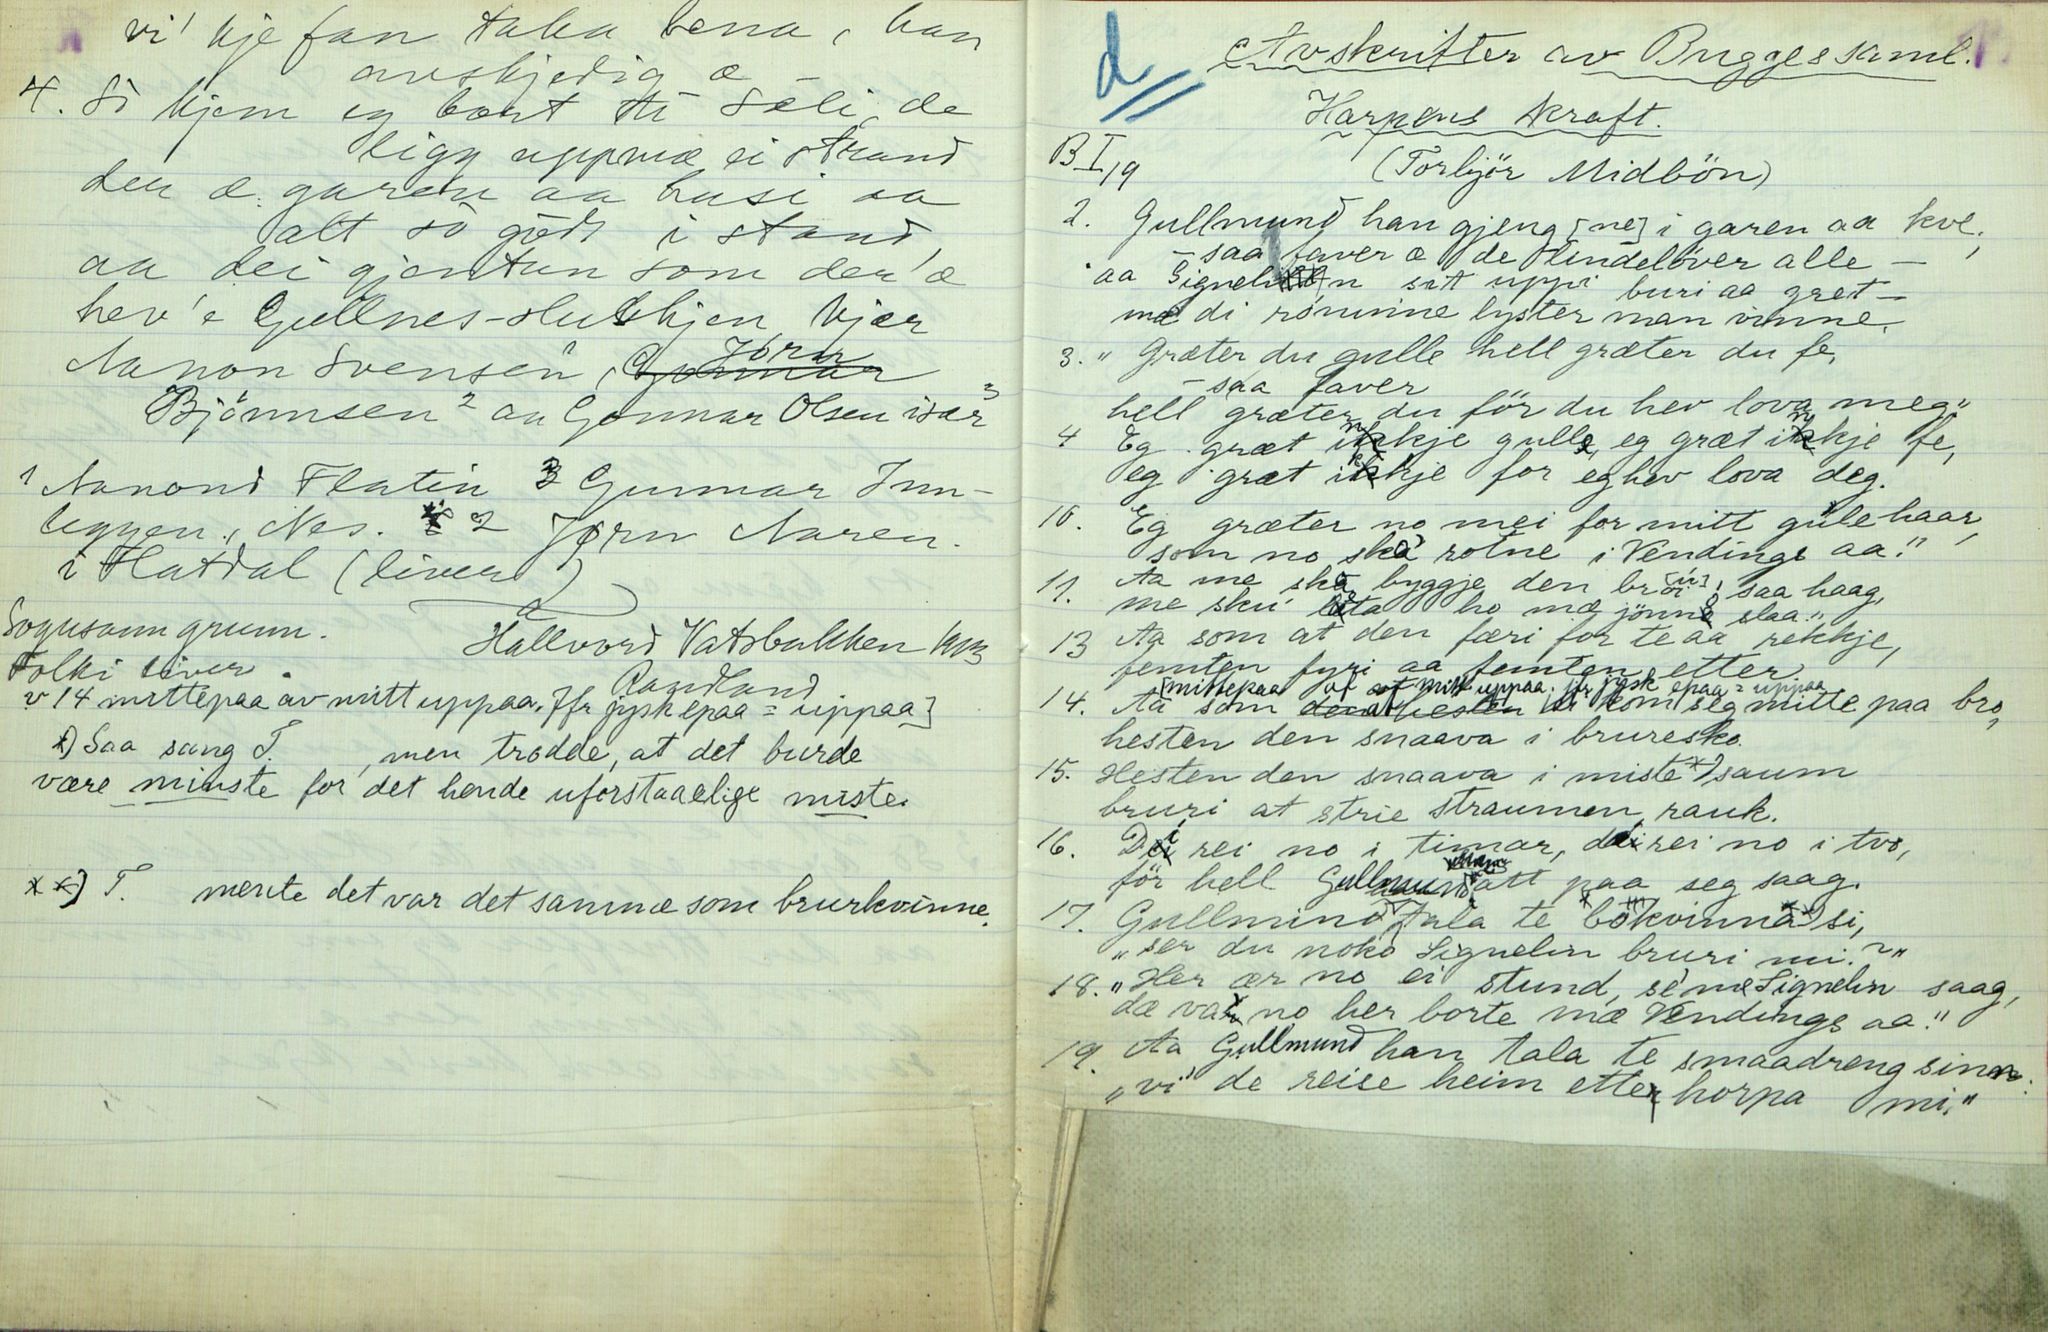 vi' kje fan taka bena, han
uvskjedig æ –
4. Så kjem eg bort til Seli, de
ligg uppmæ ei strand
der æ garen aa husi aa
alt så gödt i stand,
aa dei gjentun som der' æ
hev' e Gullnes-slukkjen kjær
Nanon Svensen¹, Gonnar Jörn
Björnnsen² aa Gonnar Olsen især³
1 Nanond Flatin 3 Gunnar Inn-
leggen, Nes. 2 Jørn Naren.
i Flatdal (liver)
Sogusamm grunn.
Hallvord Vatsbakken 1913
Folki liver.
Raudland
v 14 mittepaa av mitt uppaa. Jfr jysk epaa = uppaa]
*) Saa sang T. , men trodde, at det burde
være minste for det hende uforstaaelige miste.
**) T. mente det var det samme som brurkvinne.
d
Avskrifter av Bugges saml.
Harpens kraft.
B I, 19
(Torbjör Midbön)
2. Gullmund han gjeng [ne] i garen aa kve,
– saa faver æ de lindelöver alle –
aa Signelin sit uppi buri aa græt –
mæ di roninne lyster man vinne.
3. „Græter du gulle hell græter du fe,
– saa faver
hell græter du för du hev lova meg"
4 Eg græt inkje gulle, eg græt inkje fe,
eg græt ikkje for eg hev lova deg.
10. Eg græter no mei for mitt gule haar,
som no ska rotne i Vendings aa."
11. Aa me ska byggje den bröi [ú], saa haag,
me sku' lata ho mæ jönne slaa."
13 Aa som at den færi for te aa rekkje,
femten fyri aa femten etter
[mittepaa av mitt uppaa. jfr jysk epaa = uppaa
14. Aa som den at hesten di kom seg mitte paa bro,
hesten den snaava i bruresko.
15. Hesten den snaava i miste *) saum
bruri at strie straumen rauk.
16. Dei rei no i timar, dei rei no i tvo,
för hell Gullmund att paa seg saag.
17. Gullmund tala te bokvinna **) si,
„ser du noko Signelin bruri mi?"
18. „Her ær no ei stund, se' me Signelin saag,
dæ var no her borte mæ Vendings aa."
19. Aa Gullmund han tala te smaadreng sinn:
„vi' de reise heim etter horpa mi."